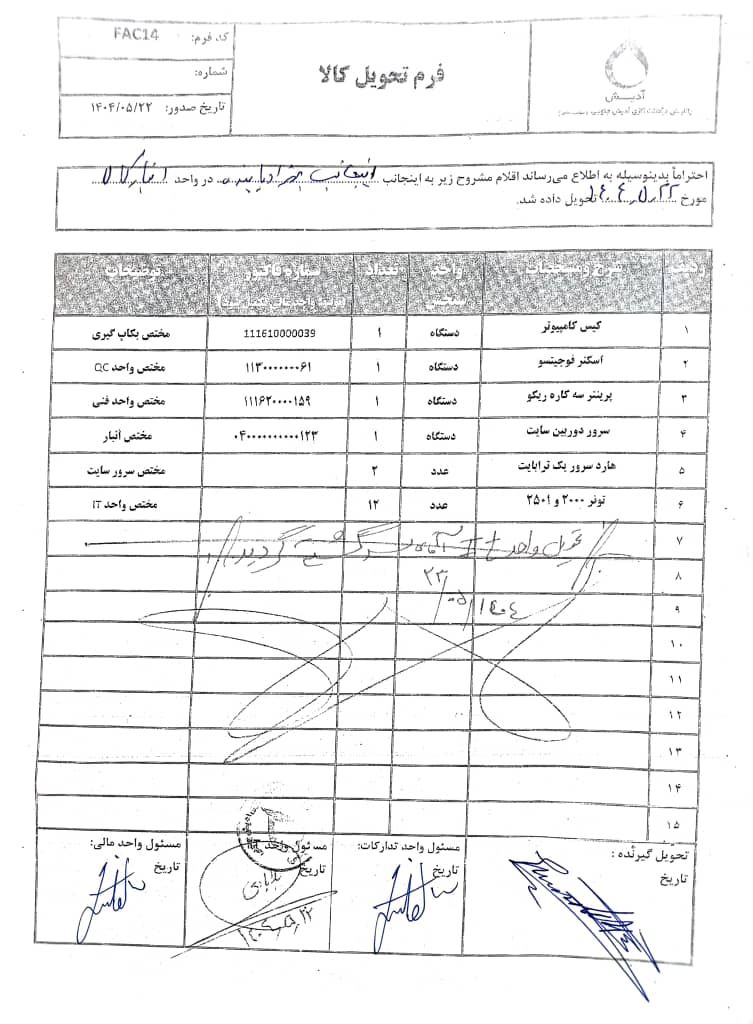 کد فرم: FAC14
شماره:
تاریخ صدور: ۱۴۰۴/۰۵/۲۲
فرم تحویل کالا
آدیش
احتراماً بدینوسیله به اطلاع می‌رساند اقلام مشروح زیر به اینجانب اینجانب در واحد انبار کالا
مورخ ۱۴۰۴,۵,۲۲ تحویل داده شد.
ردیف شرح و مشخصات واحد سنجش تعداد شماره فاکتور توضیحات
۱ کیس کامپیوتر دستگاه ۱ 111610000039 مختص بکاپ گیری
۲ اسکنر فوجیتسو دستگاه ۱ ۱۱۳۰۰۰۰۰۰۰۶۱ مختص واحد QC
۳ پرینتر سه کاره ریکو دستگاه ۱ ۱۱۱۶۲۰۰۰۰۱۵۹ مختص واحد فنی
۴ سرور دوربین سایت دستگاه ۱ ۰۴۰۰۰۰۰۰۰۰۰۰۱۲۳ مختص انبار
۵ هارد سرور یک ترابایت عدد ۲ مختص سرور سایت
۶ تونر ۲۰۰۰ و ۲۵۰۱ عدد ۱۲ مختص واحد IT
۷ تحویل واحد گردید
۸ ۲۳
۹ ۱۴۰۴/۰۵/
۱۰
۱۱
۱۲
۱۳
۱۴
۱۵
تحویل گیرنده : مسئول واحد تدارکات: مسئول واحد مسئول واحد مالی:
تاریخ تاریخ تاریخ تاریخ
۱۴۰۴,۵,۲۲